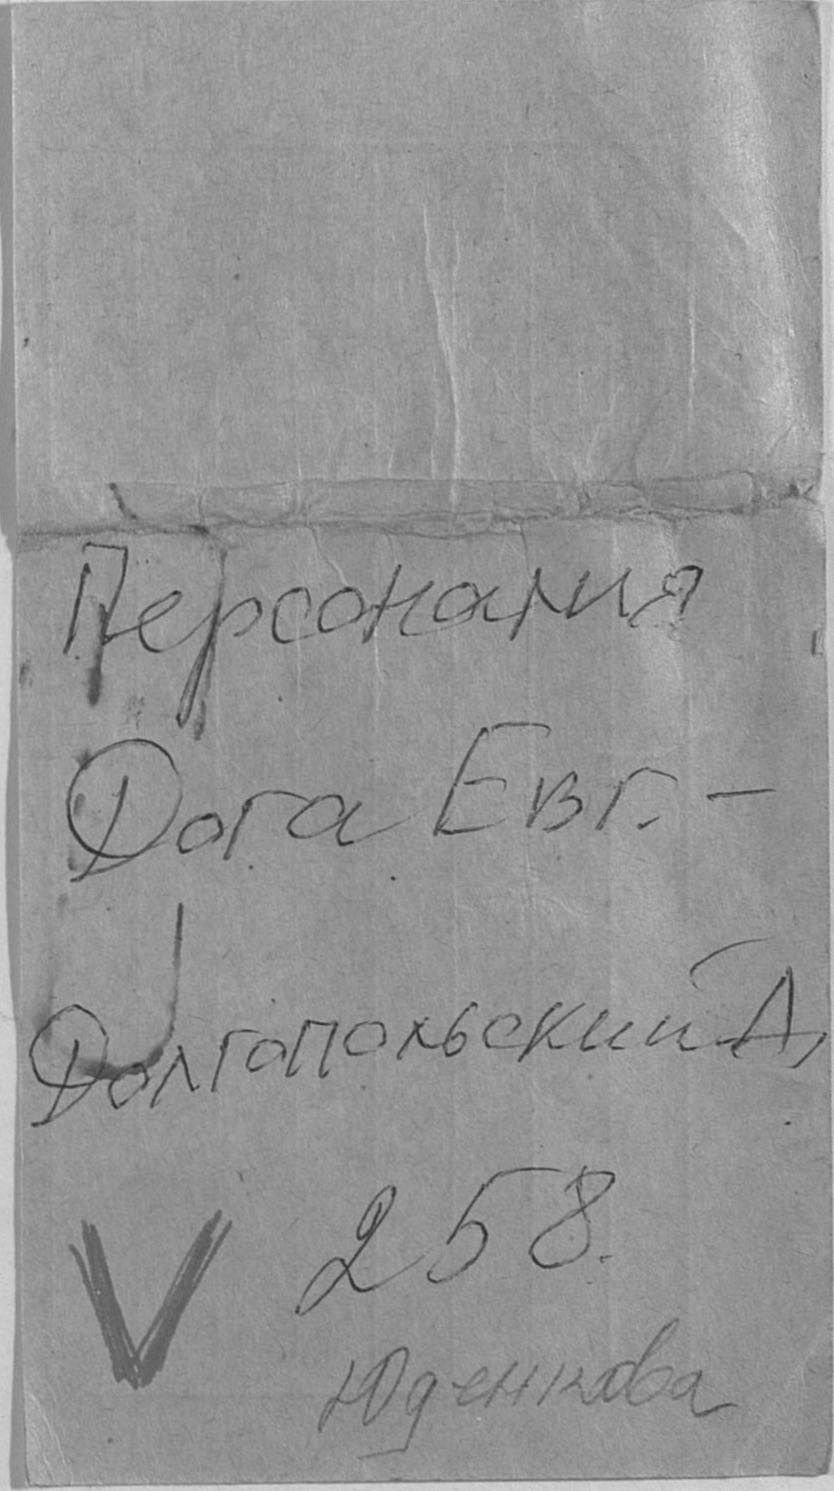 Персоналия
Дога Евг. –
Долгопольский А,
V 258.
Юденкова